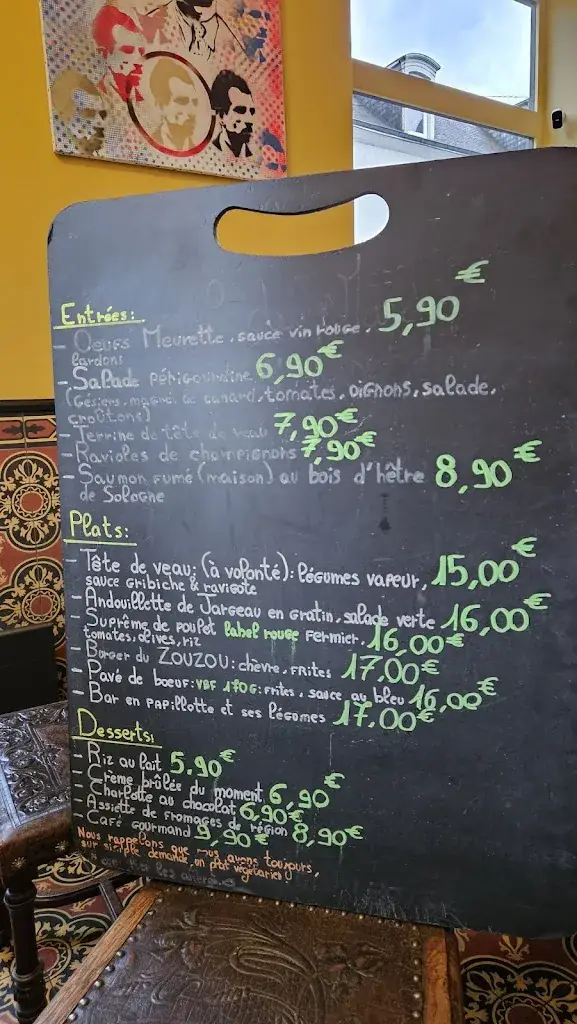 Entrées:
- Oeufs Meurette, sauce vin rouge, 5,90€
lardons
- Salade périgourdine 6,90€
(gésiers, magret de canard, tomates, oignons, salade,
croûtons)
- Terrine de tête de veau 7,90€
- Ravioles de champignons 7,90€
- Saumon fumé (maison) au bois d'hêtre 8,90€
de Sologne
Plats:
- Tête de veau: (à volonté): légumes vapeur, 15,00€
sauce gribiche & ravigote
- Andouillette de Jargeau en gratin, salade verte 16,00€
- Suprême de poulet label rouge fermier, 16,00€
tomates, olives, riz
- Burger du ZOUZOU: chèvre, frites 17,00€
- Pavé de boeuf: VBF 170G: frites, sauce au bleu 16,00€
- Bar en papillotte et ses légumes 17,00€
Desserts:
- Riz au lait 5,90€
- Crème brûlée du moment 6,90€
- Charlotte au chocolat 6,90€
- Assiette de fromages de région 8,90€
- Café gourmand 9,90€
Nous rappelons que nous avons toujours,
sur simple demande, un plat végétarien!